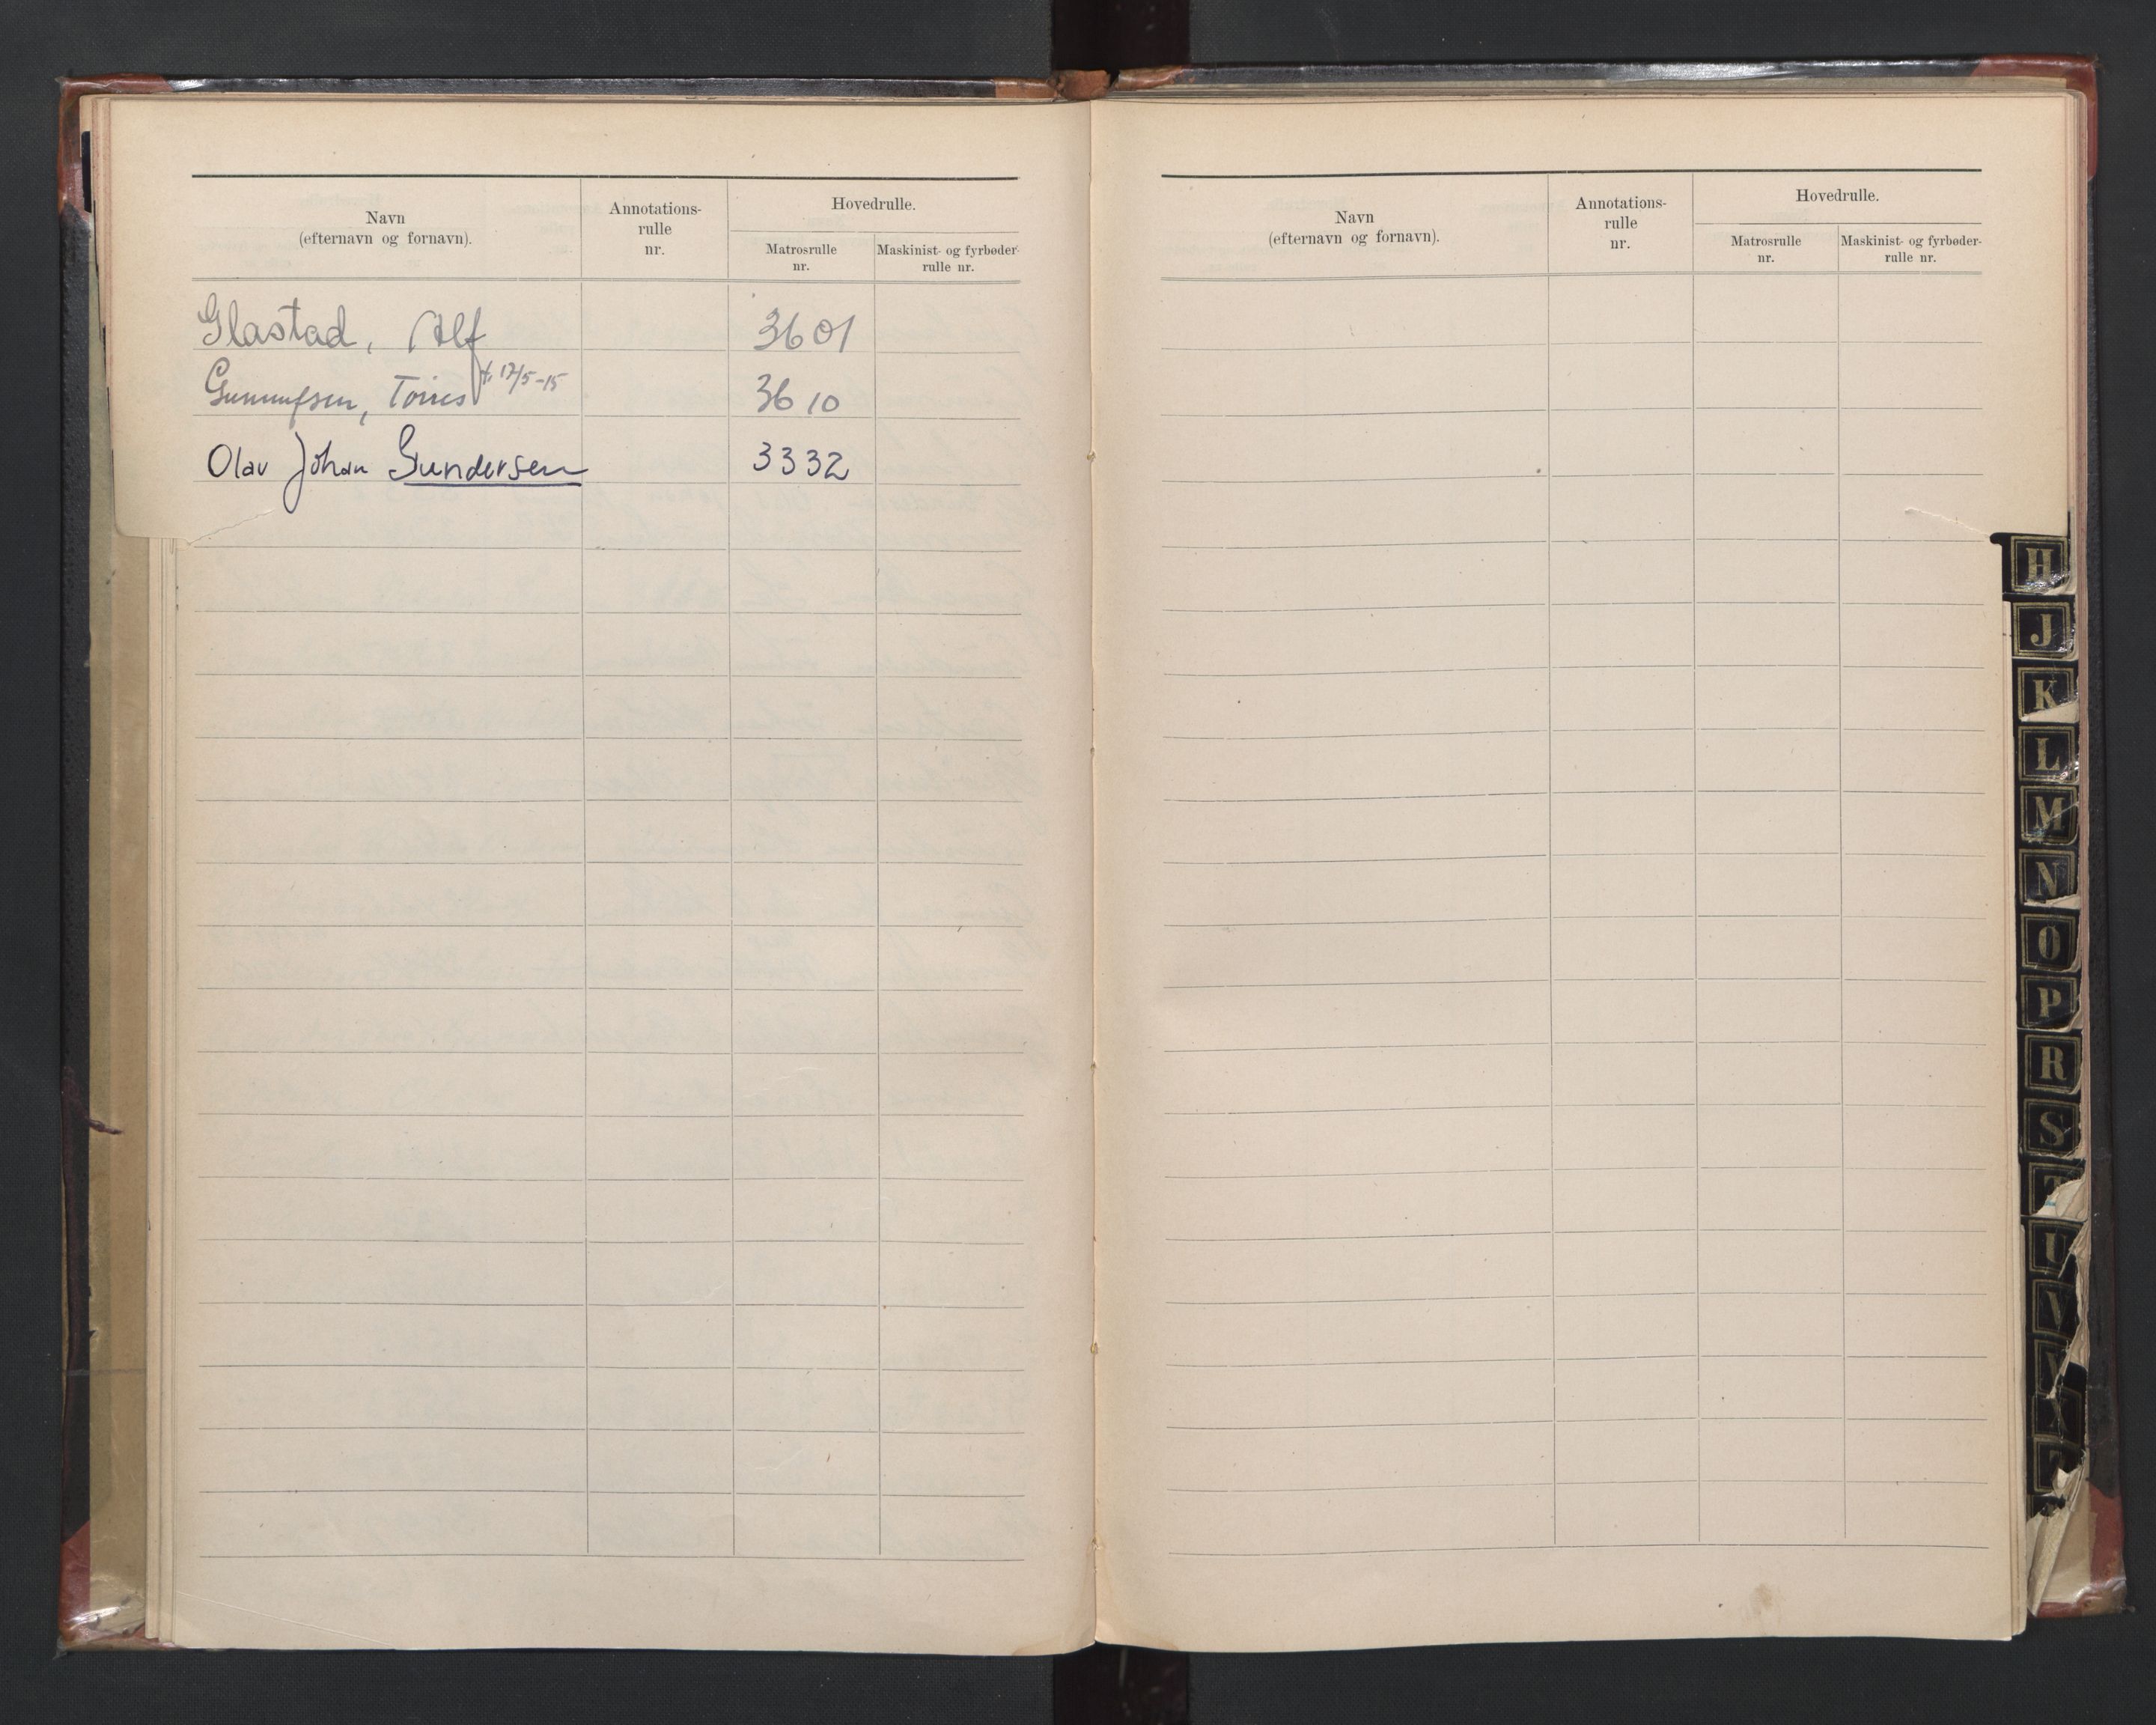 Navn
(efternavn og fornavn).
Annotations-
rulle
nr.
Hovedrulle.
Matrosrulle
nr.
Maskinist- og fyrbøder-
rulle nr.
Glastad, Alf 3601
Gunnufsen, 17/5-15 3610
Olav Johan Gundersen 3332
Navn
(efternavn og fornavn).
Annotations-
rulle
nr.
Hovedrulle.
Matrosrulle
nr.
Maskinist- og fyrbøder-
rulle nr.
H
J
K
L
M
N
O
P
R
S
T
U
V